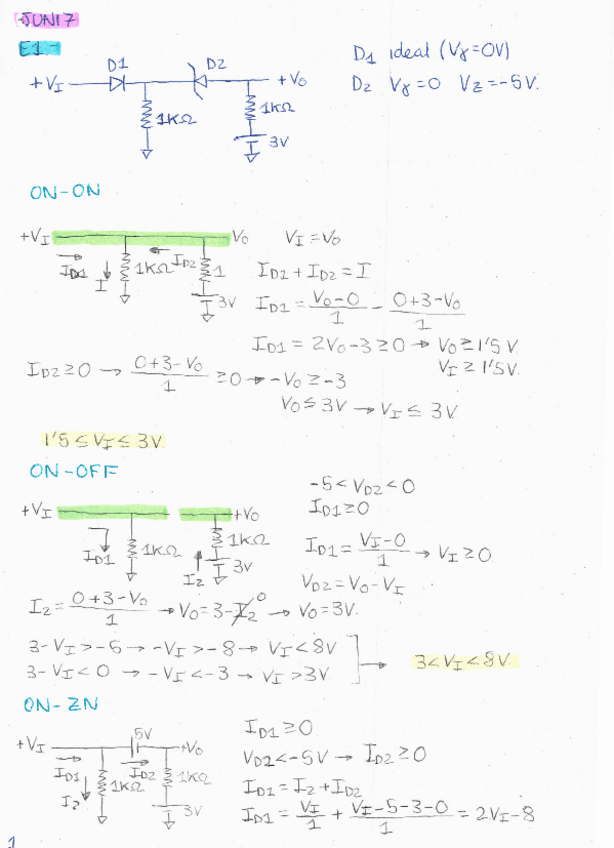 JUN17
E1-
D1 D2
+VI +VO
1KΩ 1KΩ
3V
D1 ideal (Vγ=0V)
D2 Vγ=0 VZ=-5V.
ON-ON
+VI VO
ID1 I 1KΩ ID2 1
3V
VI=VO
ID1+ID2=I
ID1= (VO-0)/1 - (0+3-VO)/1
ID1=2VO-3≥0→VO≥1'5V
VI≥1'5V.
ID2≥0→ (0+3-VO)/1 ≥0→-VO≥-3
VO≤3V→VI≤3V
1'5≤VI≤3V.
ON-OFF
+VI +VO
ID1 1KΩ I2 1KΩ
3V
-5<VD2<0
ID1≥0
ID1= (VI-0)/1 →VI≥0
VD2=VO-VI
I2= (0+3-VO)/1 →VO=3-I2 0 →VO=3V.
3-VI>-5→-VI>-8→VI<8V
3-VI<0→-VI<-3→VI>3V
→ 3<VI<8V.
ON-ZN
+VI 5V +VO
ID1 1KΩ ID2 1KΩ
I2 3V
ID1≥0
VD2<-5V→ID2≥0
ID1=I2+ID2
ID1= VI/1 + (VI-5-3-0)/1 =2VI-8
1